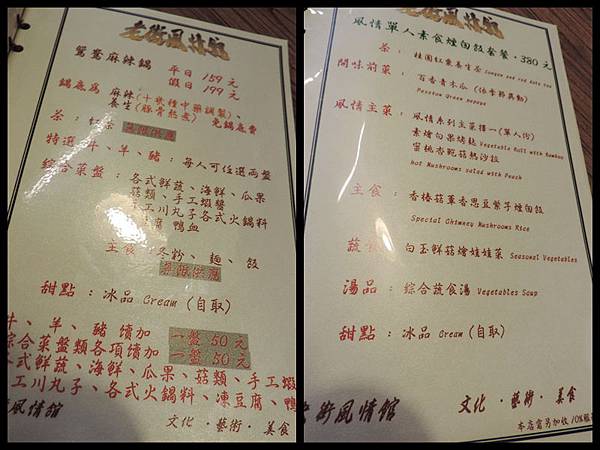 老街風情館
鴛鴦麻辣鍋 平日 159 元
假日 199 元
鍋底為 麻辣(十幾種中藥調製)、
養生(豚骨熬煮) 免鍋底費
茶：紅茶 無限供應
特選牛、羊、豬：每人可任選兩盤
綜合菜盤：各式鮮蔬、海鮮、瓜果
菇類、手工蝦漿
手工川丸子各式火鍋料
豆腐 鴨血
主食 冬粉、麵、飯
無限供應
甜點：冰品 Cream (自取)
牛、羊、豬 續加 一盤 50 元
綜合菜盤類各項續加 一盤 50 元
各式鮮蔬、海鮮、瓜果、菇類、手工蝦
手工川丸子、各式火鍋料、凍豆腐、鴨
風情館
文化 · 藝術 · 美食
老街風情館
風情單人素食煙囪飯套餐·380元
茶：桂圓紅棗養生茶 Longan and red date tea
開味前菜：百香青木瓜 (依季節異動)
Passion Grape papaya
風情主菜：風情系列主菜擇一(單人份)
素燴旬果烤麩 Vegetable Roll with Bamboo
蜜桃杏鮑菇熱沙拉
hot Mushrooms salad with Peach
主食：香椿菇蕈香思豆紫子煙囪飯
Special Chimney Mushrooms Rice
蔬食 白玉鮮菇燴娃娃菜 Seasonal Vegetables
湯品：綜合蔬食湯 Vegetables Soup
甜點：冰品 Cream (自取)
老街風情館 文化 · 藝術 · 美食
本店需另加收 10%服